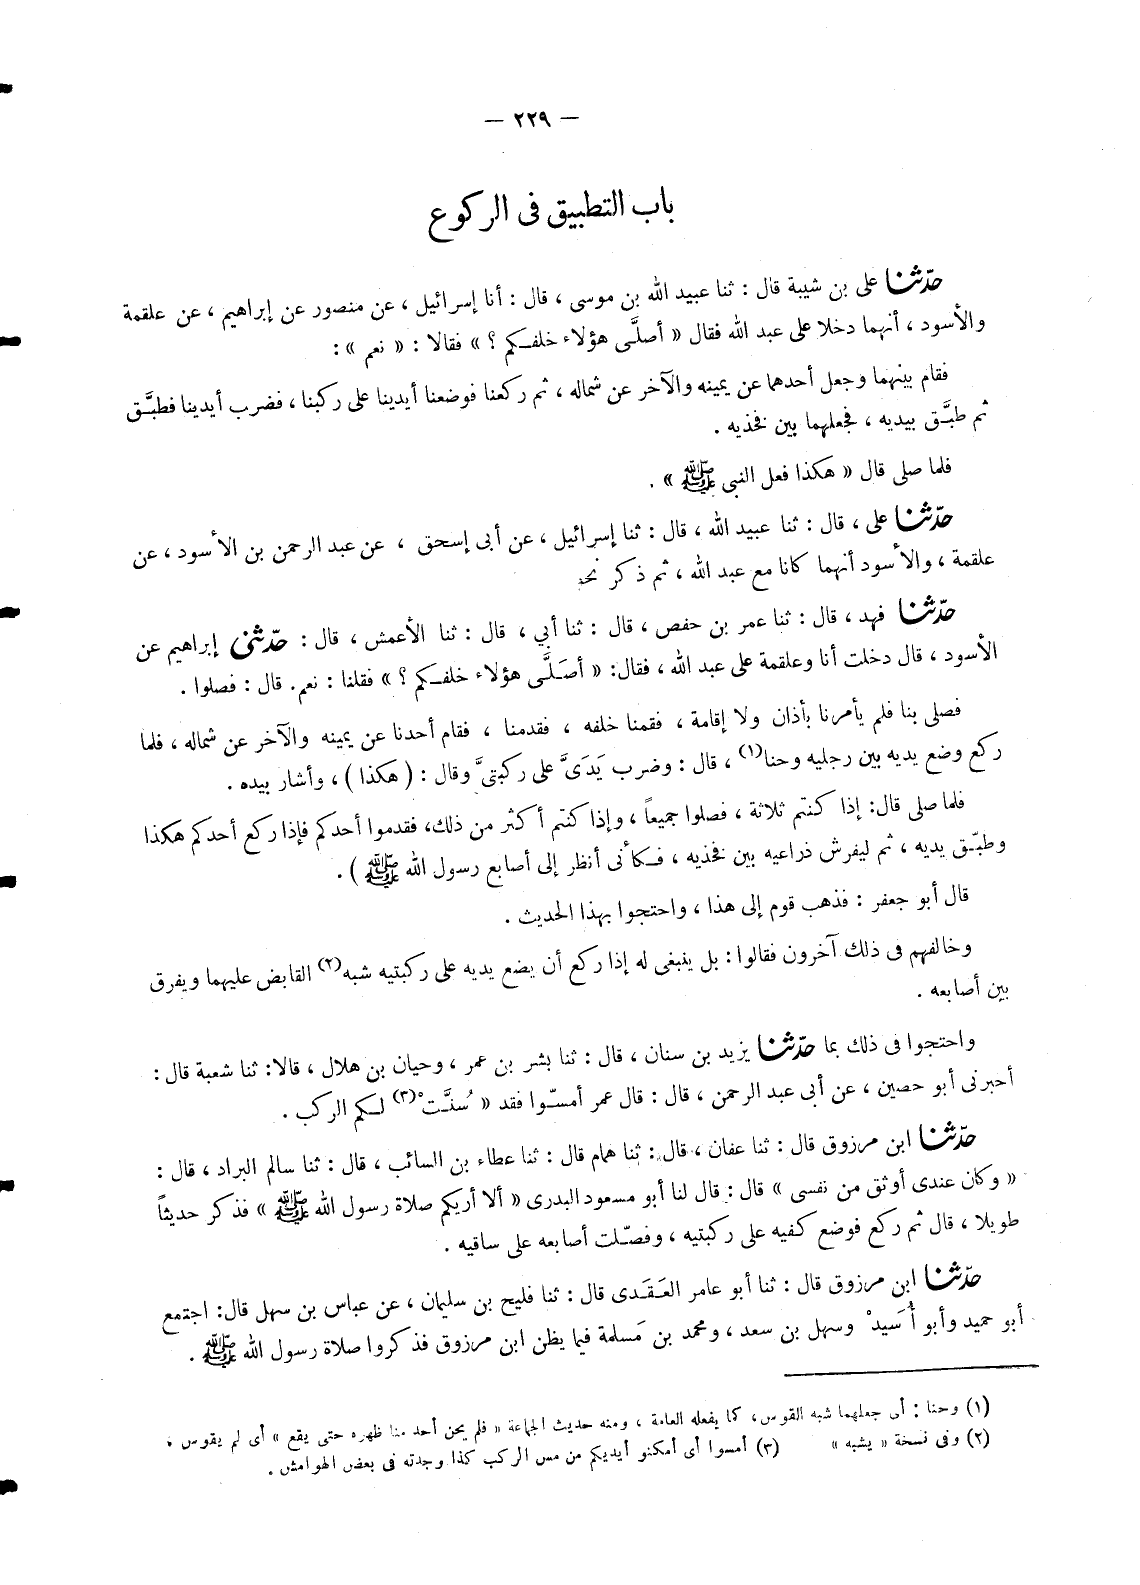 — ٢٢٩ —
باب التطبيق فى الركوع
حدّثنا على بن شيبة قال : ثنا عبيد الله بن موسى ، قال : أنا إسرائيل ، عن منصور عن إبراهيم ، عن علقمة
والأسود ، أنهما دخلا على عبد الله فقال « أصلَّى هؤلاء خلفكم ؟ » فقالا : « نعم » :
فقام بينهما وجعل أحدهما عن يمينه والآخر عن شماله ، ثم ركعنا فوضعنا أيدينا على ركبنا ، فضرب أيدينا فطبَّق
ثم طبَّق بيديه ، فجعلهما بين فخذيه .
فلما صلى قال « هكذا فعل النبى ﷺ » .
حدّثنا على ، قال : ثنا عبيد الله ، قال : ثنا إسرائيل ، عن أبى إسحق ، عن عبد الرحمن بن الأسود ، عن
علقمة ، والأسود أنهما كانا مع عبد الله ، ثم ذكر
حدّثنا فهد ، قال : ثنا عمر بن حفص ، قال : ثنا أبي ، قال : ثنا الأعمش ، قال : حدّثنى إبراهيم عن
الأسود ، قال دخلت أنا وعلقمة على عبد الله ، فقال: « أصَلَّى هؤلاء خلفكم ؟ » فقلنا : نعم. قال : فصلوا .
فصلى بنا فلم يأمرنا بأذان ولا إقامة ، فقمنا خلفه ، فقدمنا ، فقام أحدنا عن يمينه والآخر عن شماله ، فلما
ركع وضع يديه بين رجليه وحنا(١) ، قال : وضرب يَدَىَّ على ركبتىَّ وقال : ( هكذا ) ، وأشار بيده .
فلما صلى قال: إذا كنتم ثلاثة ، فصلوا جميعاً ، وإذا كنتم أكثر من ذلك، فقدموا أحدكم فإذا ركع أحدكم هكذا
وطبّق يديه ، ثم ليفرش ذراعيه بين فخذيه ، فكأنى أنظر إلى أصابع رسول الله ﷺ ) .
قال أبو جعفر : فذهب قوم إلى هذا ، واحتجوا بهذا الحديث .
وخالفهم فى ذلك آخرون فقالوا : بل ينبغى له إذا ركع أن يضع يديه على ركبتيه شبه(٢) القابض عليهما ويفرق
بين أصابعه .
واحتجوا فى ذلك بما حدّثنا يزيد بن سنان ، قال : ثنا بشر بن عمر ، وحيان بن هلال ، قالا: ثنا شعبة قال :
أخبرنى أبو حصين ، عن أبى عبد الرحمن ، قال : قال عمر أمسّوا فقد « سُنَّتْ(٣) لكم الركب .
حدّثنا ابن مرزوق قال : ثنا عفان ، قال : ثنا همام قال : ثنا عطاء بن السائب ، قال : ثنا سالم البراد ، قال :
« وكان عندى أوثق من نفسى » قال : قال لنا أبو مسعود البدرى « ألا أريكم صلاة رسول الله ﷺ » فذكر حديثاً
طويلا ، قال ثم ركع فوضع كفيه على ركبتيه ، وفصّلت أصابعه على ساقيه .
حدّثنا ابن مرزوق قال : ثنا أبو عامر العَقَدى قال : ثنا فليح بن سليمان ، عن عباس بن سهل قال: اجتمع
أبو حميد وأبو أُسَيدْ وسهل بن سعد ، ومحمد بن مَسلمة فيما يظن ابن مرزوق فذكروا صلاة رسول الله ﷺ .
(١) وحنا : أى جعلهما شبه القوس، كما يفعله العامة ، ومنه حديث الجماعة « فلم يحن أحد منا ظهره حتى يقع » أى لم يقوس ،
(٢) وفى نسخة « يشبه » (٣) أمسوا أى أمكنو أيديكم من مس الركب كذا وجدته فى بعض الهوامش .